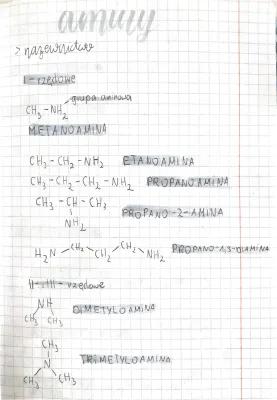 aminy
> nazewnictwo
I-rzędowe
grupa aminowa
CH₃-NH₂
METANOAMINA
CH₃-CH₂-NH₂ ETANOAMINA
CH₃-CH₂-CH₂-NH₂ PROPANOAMINA
CH₃-CH-CH₃
NH₂ PROPANO-2-AMINA
H₂N CH₂ CH₂ CH₂ NH₂ PROPANO-1,3-DIAMINA
II-, III-rzędowe
NH
CH₃ CH₃ DIMETYLOAMINA
CH₃
N TRIMETYLOAMINA
CH₃ CH₃